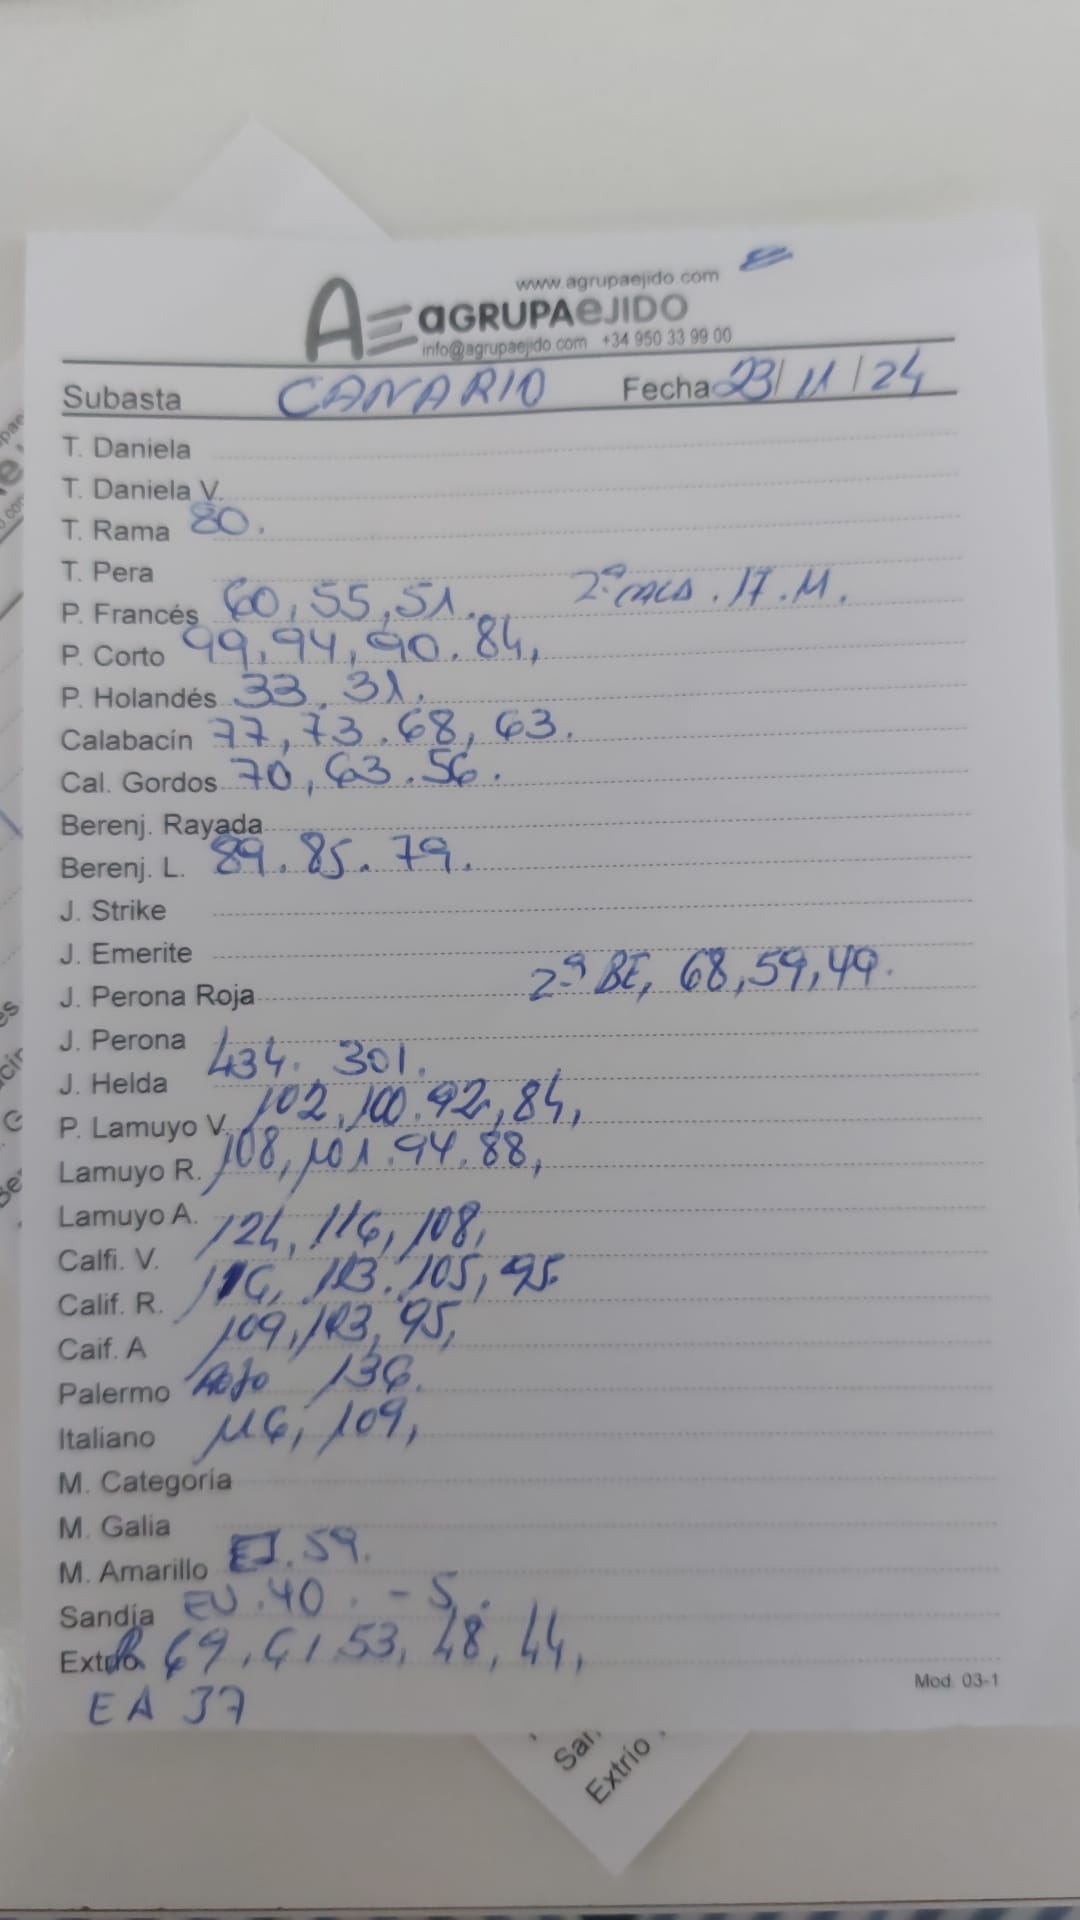 www.agrupaejido.com
AE aGRUPAeJIDO
info@agrupaejido.com +34 950 33 99 00
Subasta CANARIO Fecha 23/11/24
T. Daniela
T. Daniela V.
T. Rama 80.
T. Pera
P. Francés 60, 55, 51. 2ª CALA. 17. M.
P. Corto 99, 94, 90. 84,
P. Holandés 33, 31.
Calabacín 77, 73. 68, 63.
Cal. Gordos 70, 63. 56.
Berenj. Rayada
Berenj. L. 89. 85. 79.
J. Strike
J. Emerite
J. Perona Roja 2ª BE, 68, 59, 49.
J. Perona
J. Helda 434. 301.
P. Lamuyo V. 102, 100. 92, 84,
Lamuyo R. 108, 101. 94. 88,
Lamuyo A.
Calfi. V. 124, 116, 108,
Calif. R. 116, 113. 105, 95
Caif. A 109, 103, 95,
Palermo Rojo 136.
Italiano 116, 109,
M. Categoría
M. Galia
M. Amarillo EJ. 59.
Sandía EU. 40. - 5.
Extrio R 69, 61 53, 48, 44,
EA 37
Mod. 03-1
Extrío